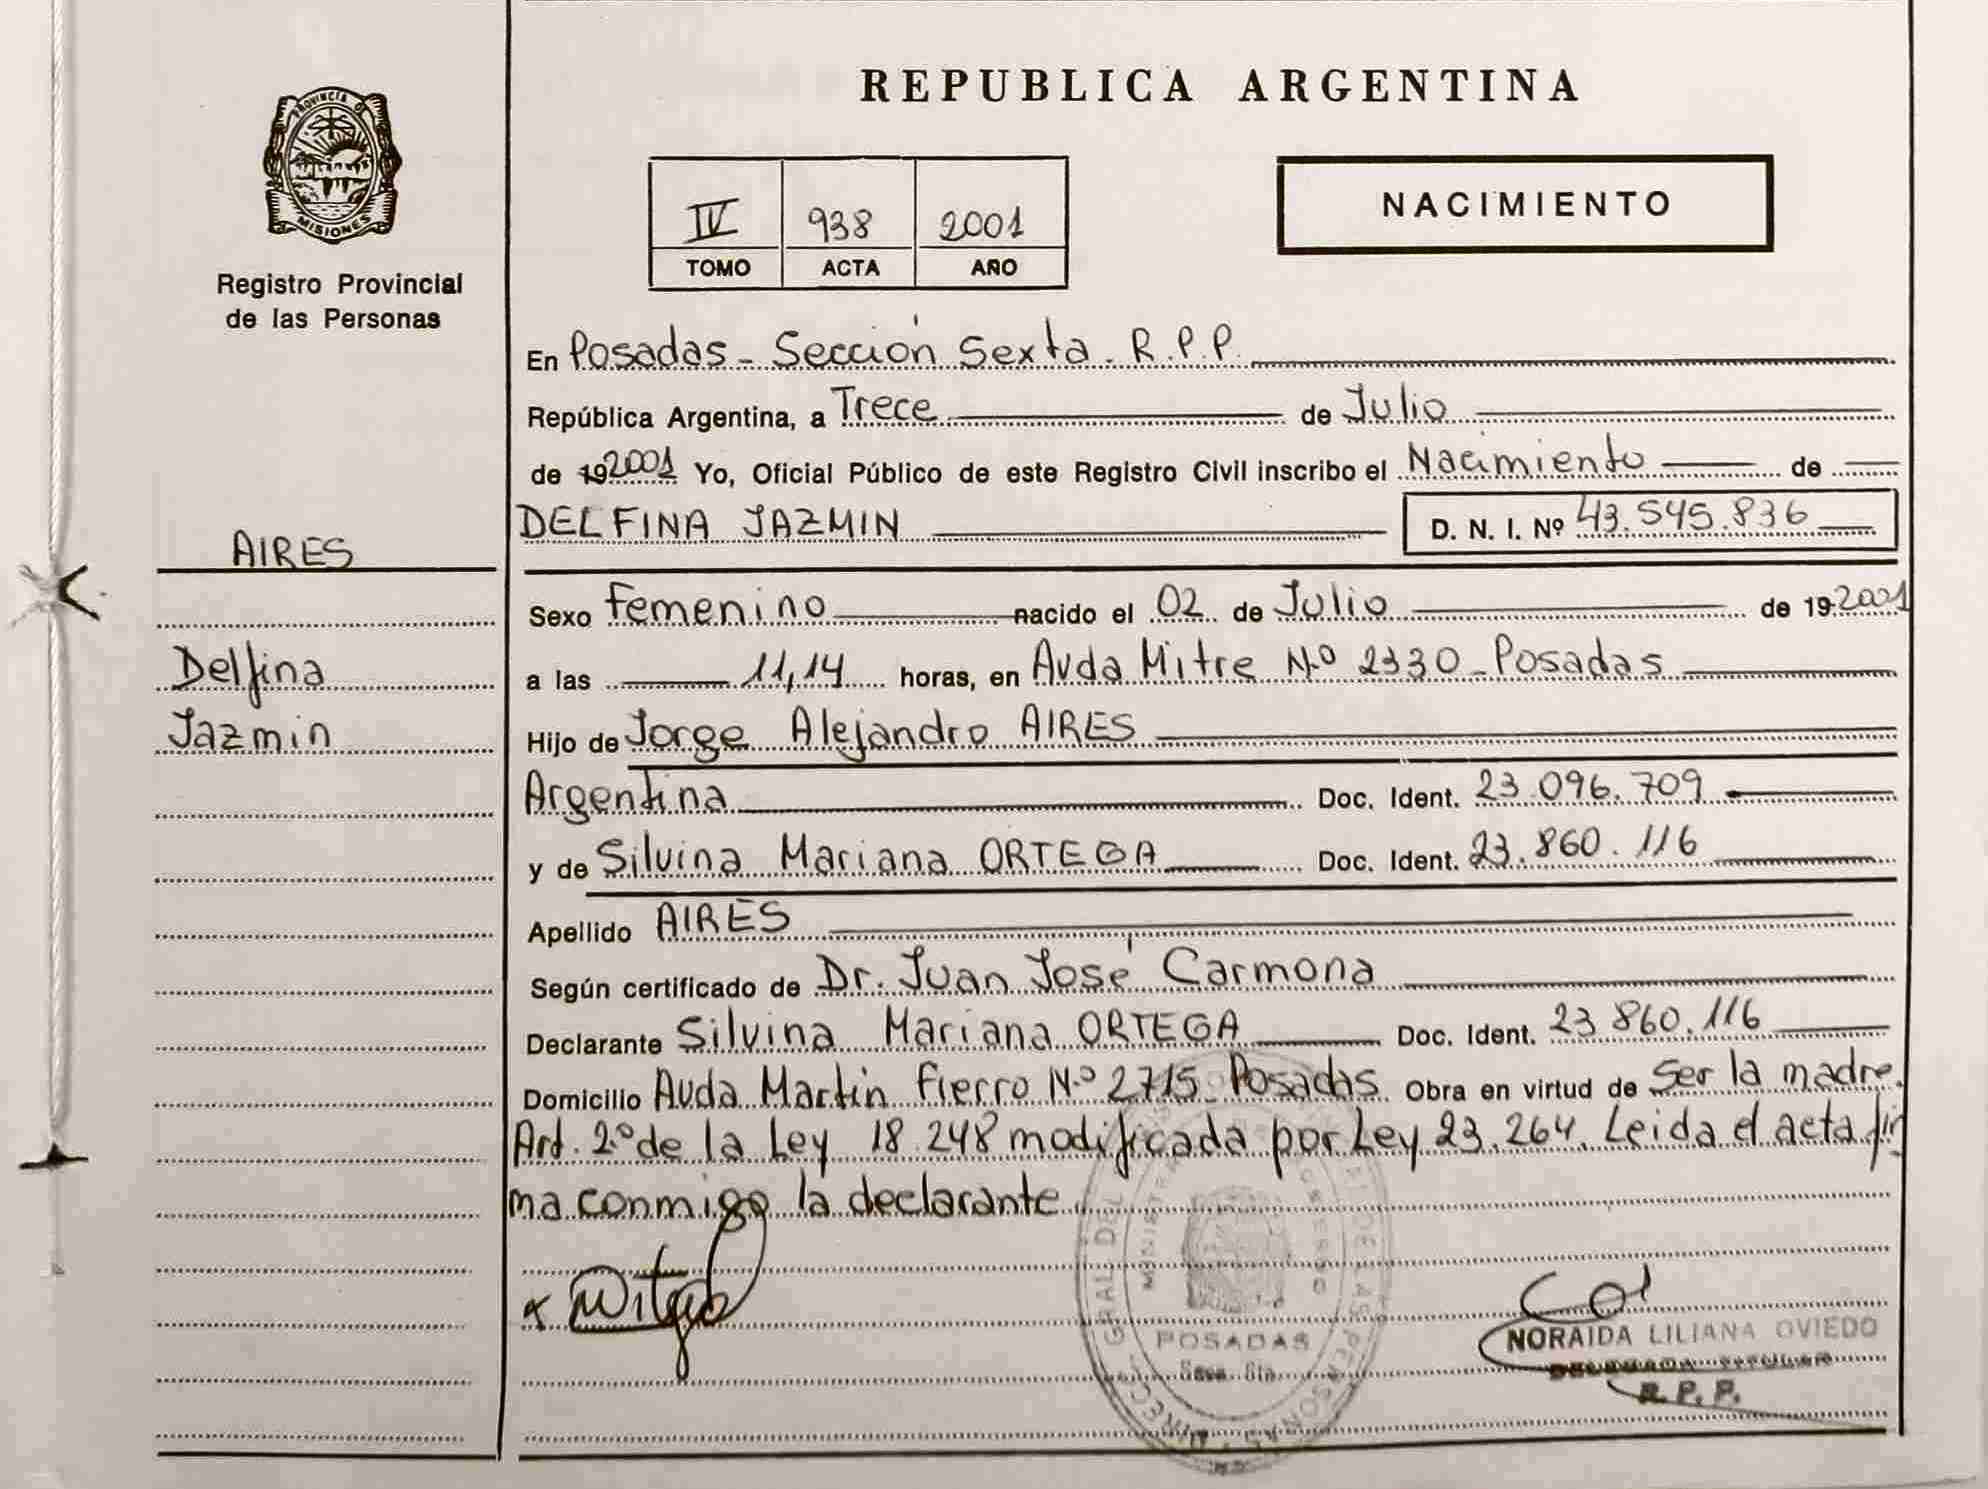 PROVINCIA DE
MISIONES
Registro Provincial
de las Personas
AIRES
Delfina
Jazmin
REPUBLICA ARGENTINA
IV 938 2001
TOMO ACTA AÑO
NACIMIENTO
En Posadas - Sección Sexta. R.P.P.
República Argentina, a Trece de Julio
de 192001 Yo, Oficial Público de este Registro Civil inscribo el Nacimiento de
DELFINA JAZMIN D. N. I. Nº 43.545.836
Sexo Femenino nacido el 02 de Julio de 19 2001
a las 11,14 horas, en Avda Mitre Nº 2330 - Posadas
Hijo de Jorge Alejandro AIRES
Argentina Doc. Ident. 23.096.709
y de Silvina Mariana ORTEGA Doc. Ident. 23.860.116
Apellido AIRES
Según certificado de Dr. Juan José Carmona
Declarante Silvina Mariana ORTEGA Doc. Ident. 23.860.116
Domicilio Avda Martin Fierro Nº 2715 Posadas Obra en virtud de Ser la madre.
Art. 2º de la Ley 18.248 modificada por Ley 23.264. Leida el acta fir
ma conmigo la declarante.
POSADAS
NORAIDA LILIANA OVIEDO
DELEGADA TITULAR
R. P. P.